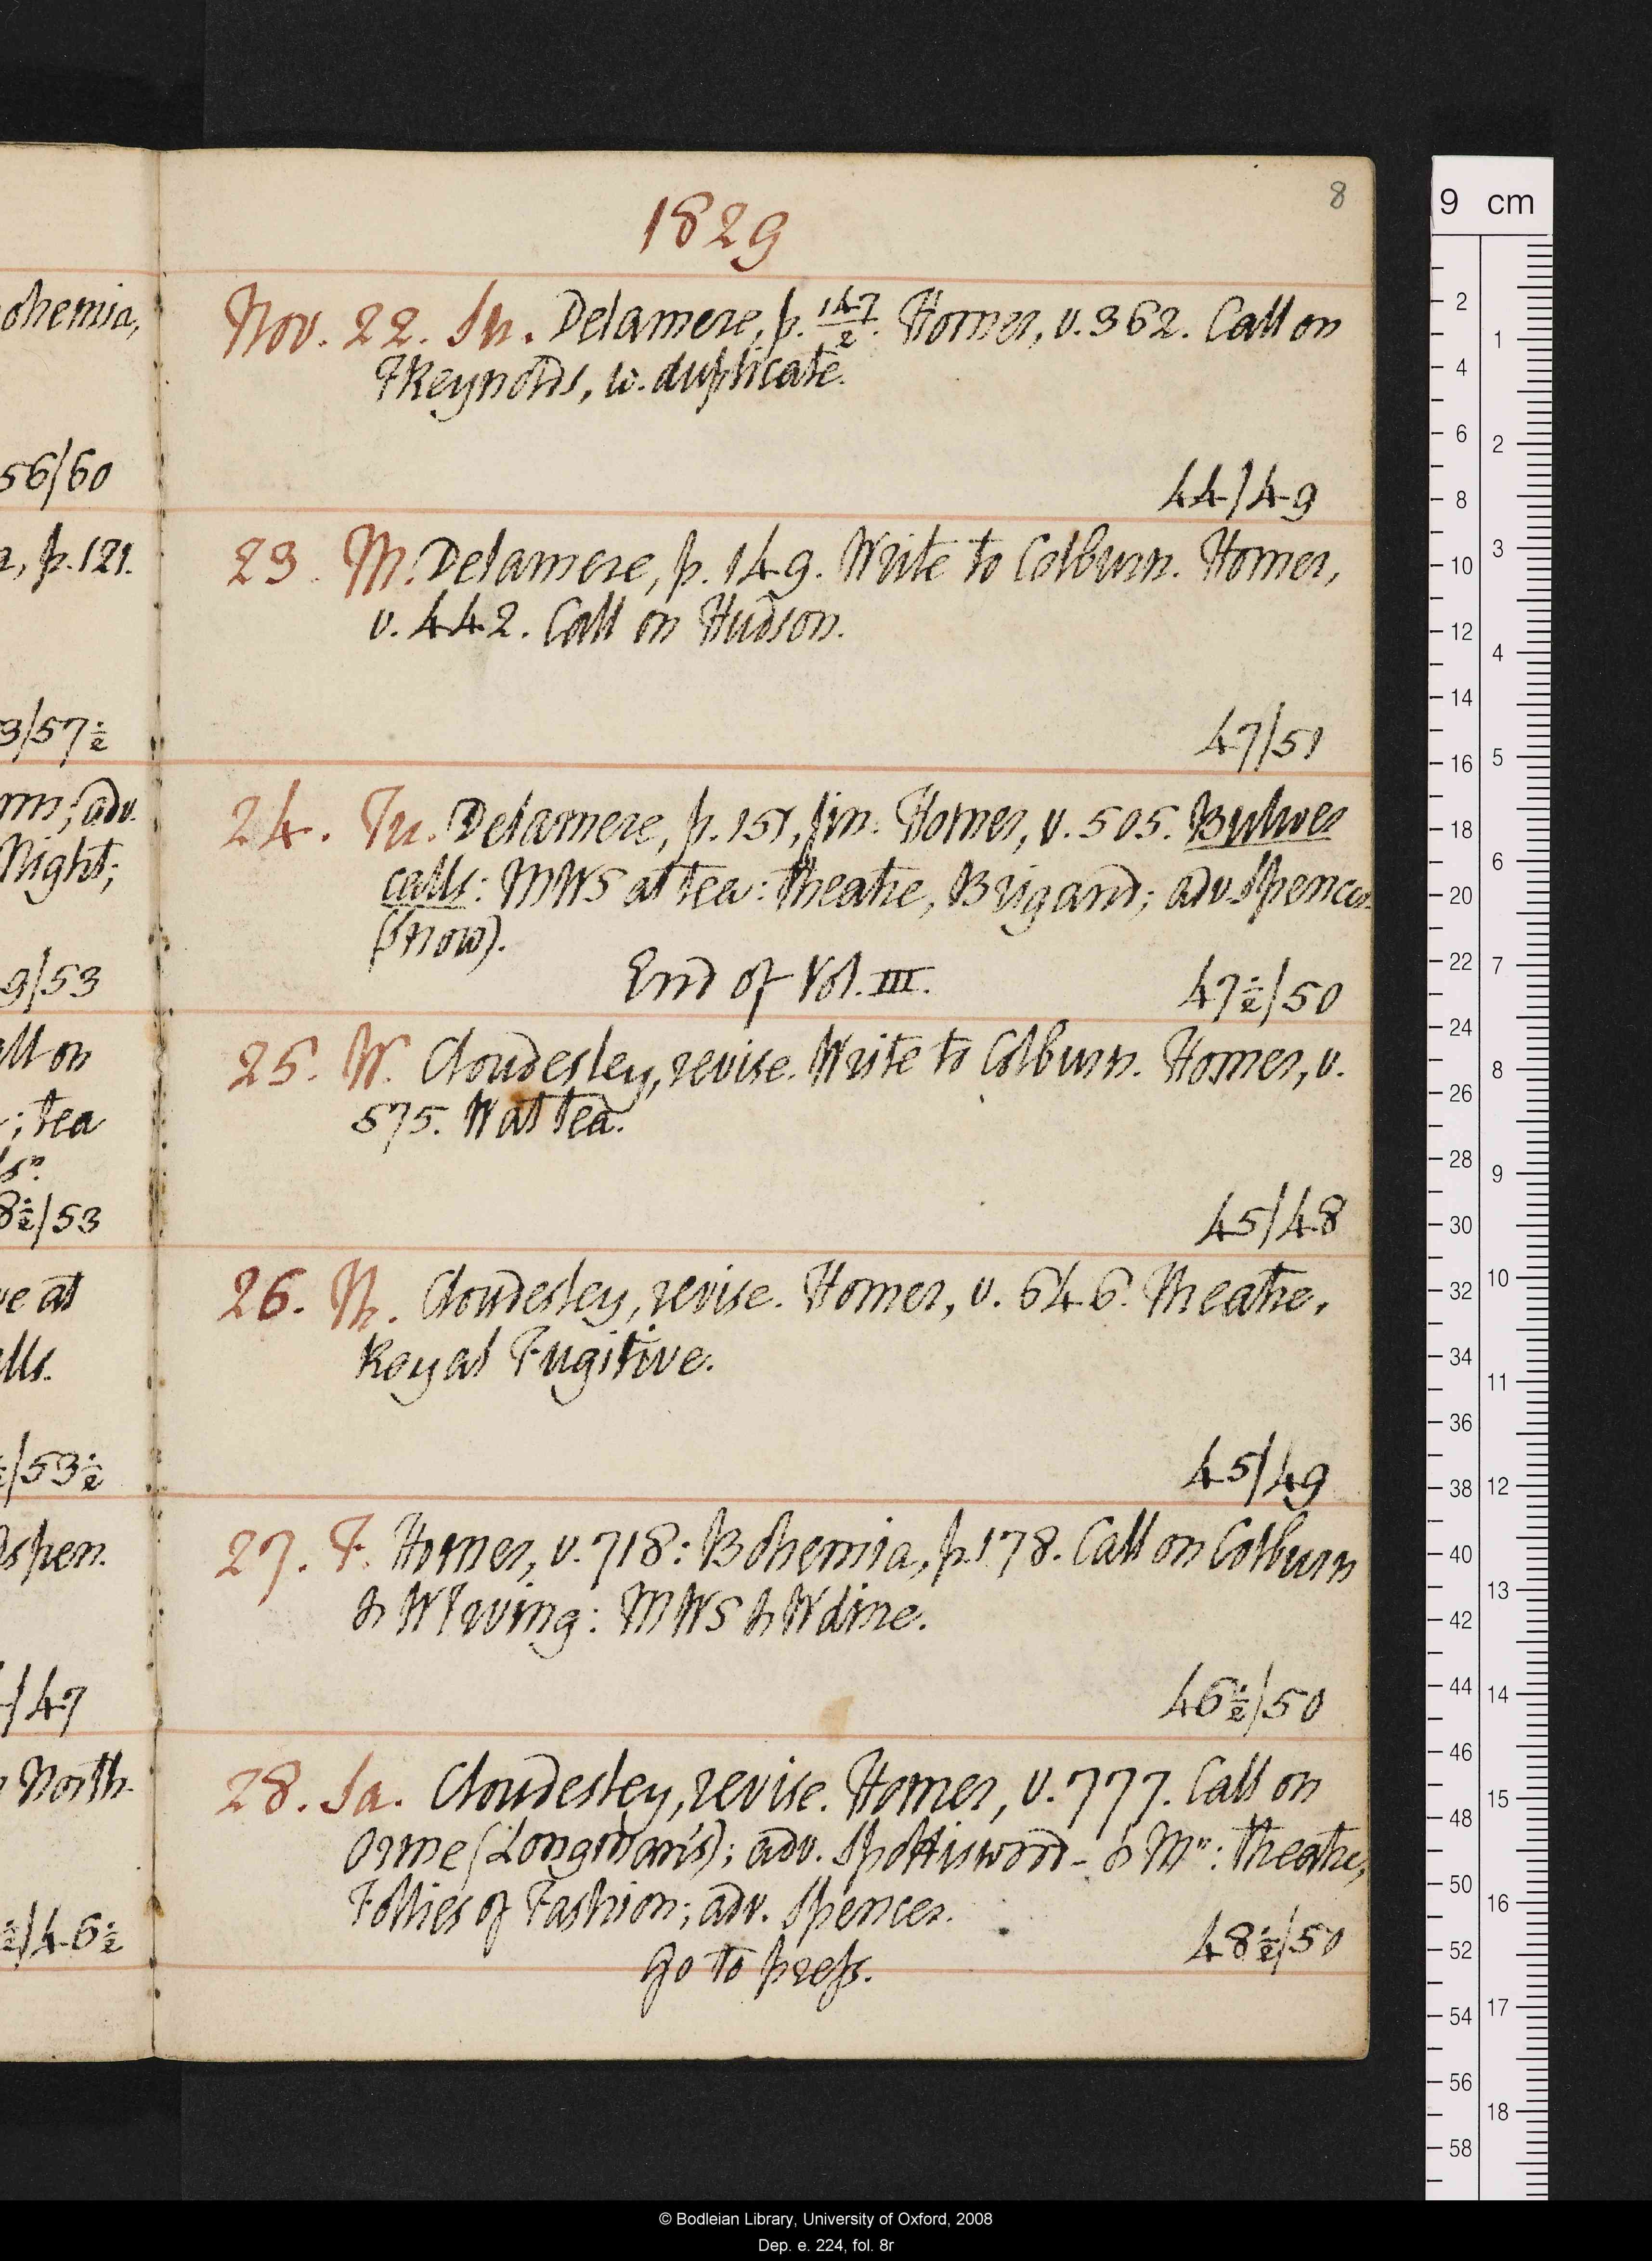 8
1829
Nov. 22. Su. Delamere, p. 147/2. Homer, v. 362. Call on
FReynolds, w. duplicate.
44/49
23. M. Delamere, p. 149. Write to Colburn. Homer,
v. 442. Call on Hudson.
47/51
24. Tu. Delamere, p. 151, fin. Homer, v. 505. Bulwer
calls: MWS at tea: theatre, Brigand; adv. Spencer
(snow).
End of Vol. III.
47½/50
25. W. Cloudesley, revise. Write to Colburn. Homer, v.
575. W at tea.
45/48
26. Th. Cloudesley, revise. Homer, v. 646. Theatre,
Royal Fugitive.
45/49
27. F. Homer, v. 718: Bohemia, p. 178. Call on Colburn
& WIrving: MWS & W dine.
46½/50
28. Sa. Cloudesley, revise. Homer, v. 777. Call on
Orme (Longman's); adv. Spottiswood - & Mrs: theatre,
Follies of Fashion; adv. Spencer.
48½/50
Go to press.
ohemia,
56/60
a, p. 121.
3/57½
rns; adv.
Night;
9/53
all on
; tea
8½/53
ve at
alls.
/53½
dspen.
/47
North-
½/46½
9 cm
2
4
6
8
10
12
14
16
18
20
22
24
26
28
30
32
34
36
38
40
42
44
46
48
50
52
54
56
58
1
2
3
4
5
6
7
8
9
10
11
12
13
14
15
16
17
18
© Bodleian Library, University of Oxford, 2008
Dep. e. 224, fol. 8r